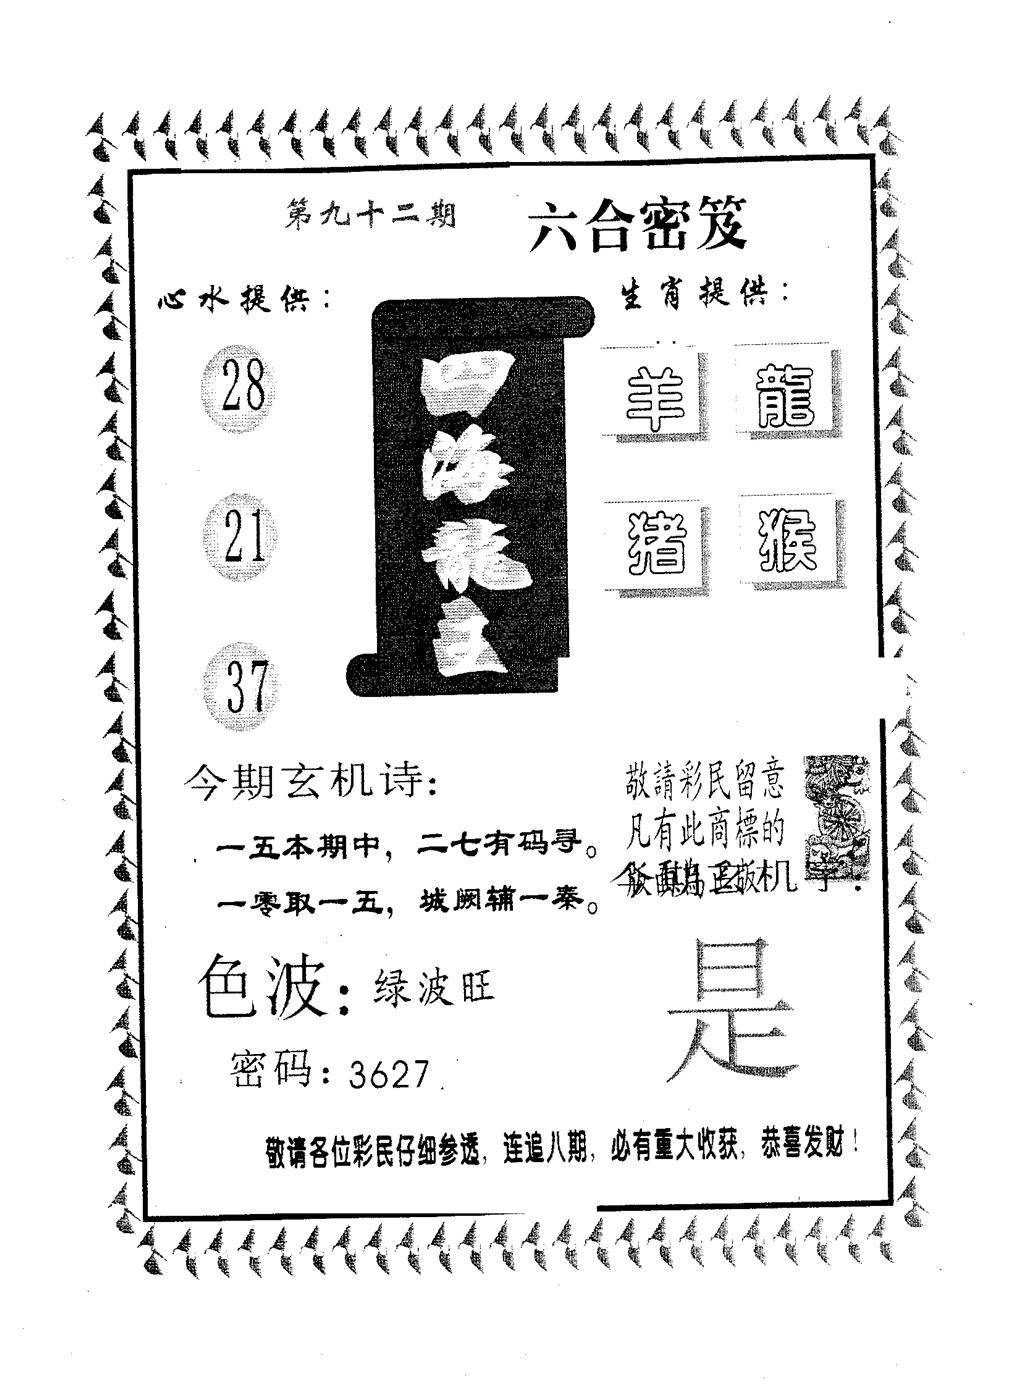 第九十二期
六合密笈
心水提供：
生肖提供：
28
21
37
四海龍王
羊 龍
猪 猴
今期玄机诗：
一五本期中，二七有码寻。
一零取一五，城阙辅一秦。
敬請彩民留意
凡有此商標的
版面為正版
机字：
色波：绿波旺
密码：3627
是
敬请各位彩民仔细参透，连追八期，必有重大收获，恭喜发财！